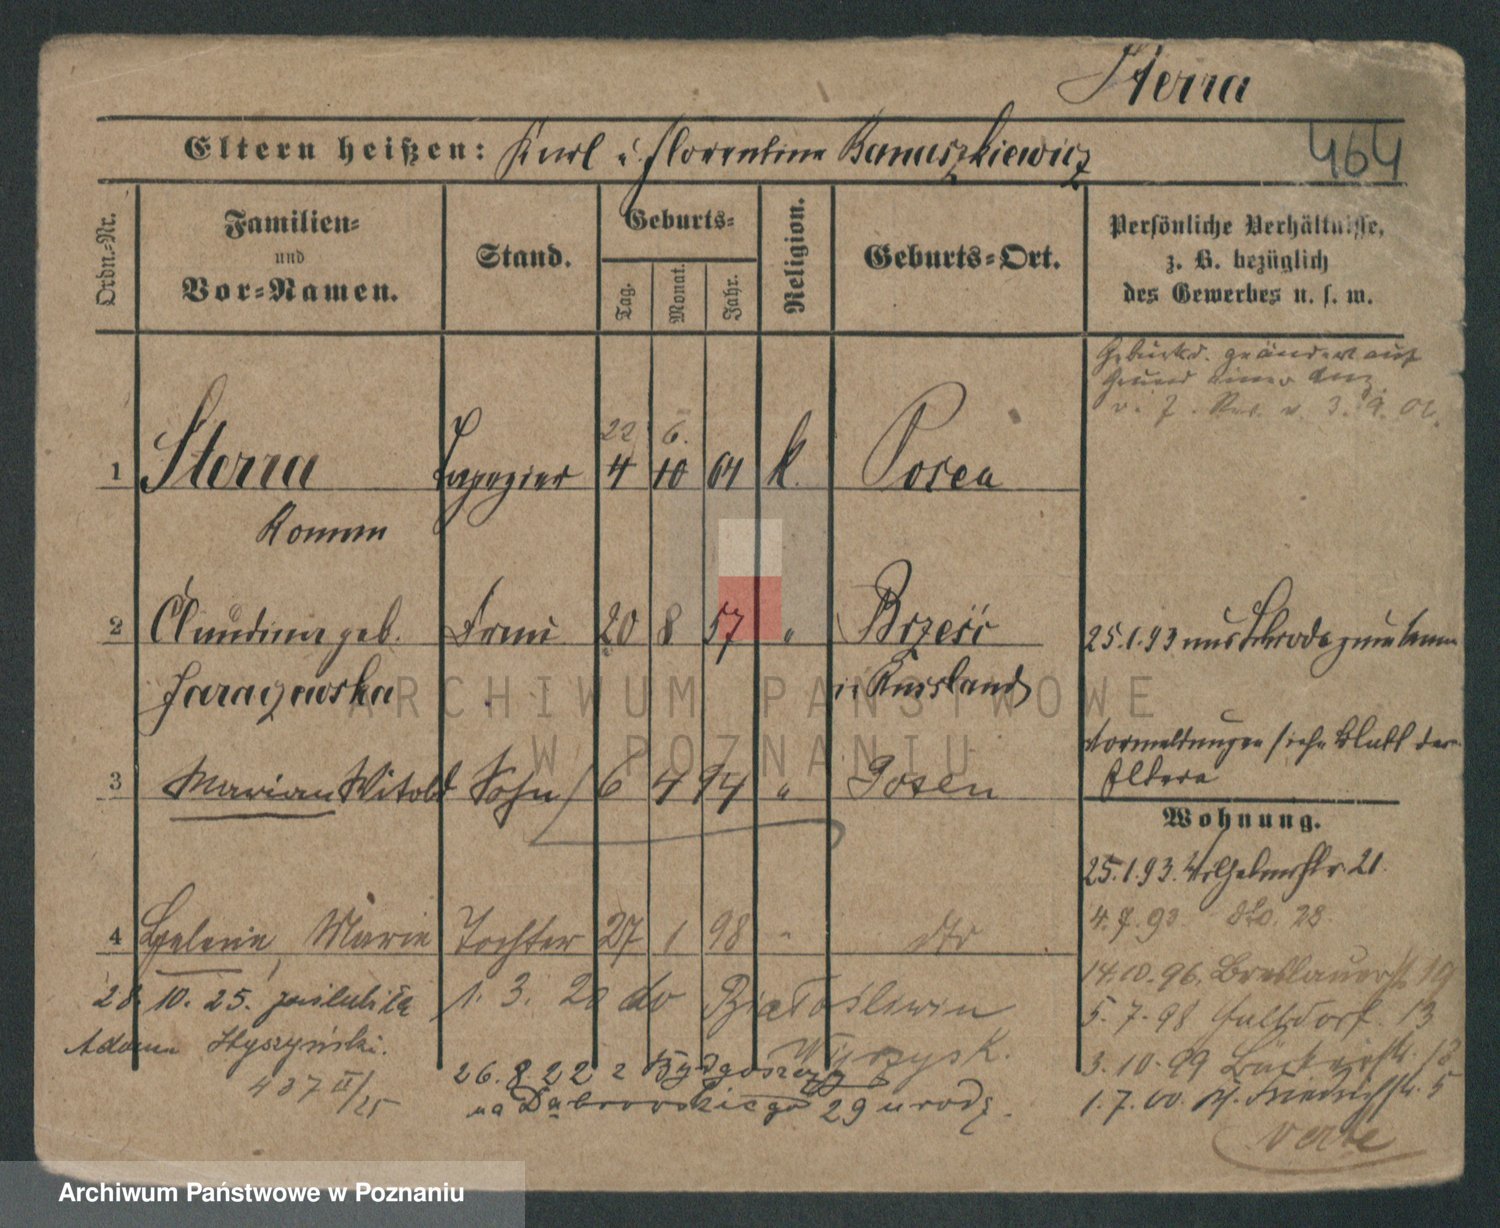 Sterra
Eltern heißen: Karl u. Florentina Banaszkiewicz
464
Ordn.-Nr.
Familien- und Vor-Namen.
Stand.
Geburts-
Tag.
Monat.
Jahr.
Religion.
Geburts-Ort.
Persönliche Verhältnisse,
z. B. bezüglich
des Gewerbes u. s. w.
Geburtsd. geändert auf
Grund einer
v. 3. 9. 02.
22 6.
1 Sterra Tapezier 4 10 64 k. Posen
Roman
2 Claudina geb. Frau 20 8 57 " Brześć
Jaraczewska in Russland
25.1.93 aus Schroda zum
3 Marian Witold Sohn 6 4 94 " Posen
Vormeldungen siehe Blatt der
Eltern
Wohnung.
25.1.93. Wilhelmstr. 21.
4.7.93 dto. 28
14.10.96. Breslauerst. 19
5.7.98 Halbdorf. 13
3.10.99 Bäckerstr. 18
1.7.00. Friedrichstr. 5
verte
4 Helene, Marie Tochter 27 1 98 " dto
28. 10. 25. poślubiła
Adama Styszyński.
437 II/25
1. 3. 20 do Białośliwia
Wyrzysk.
26. 8 22 z Bydgoszczy
na Dąbrowskiego 29 u rodz.
ARCHIWUM PAŃSTWOWE
W POZNANIU
Archiwum Państwowe w Poznaniu